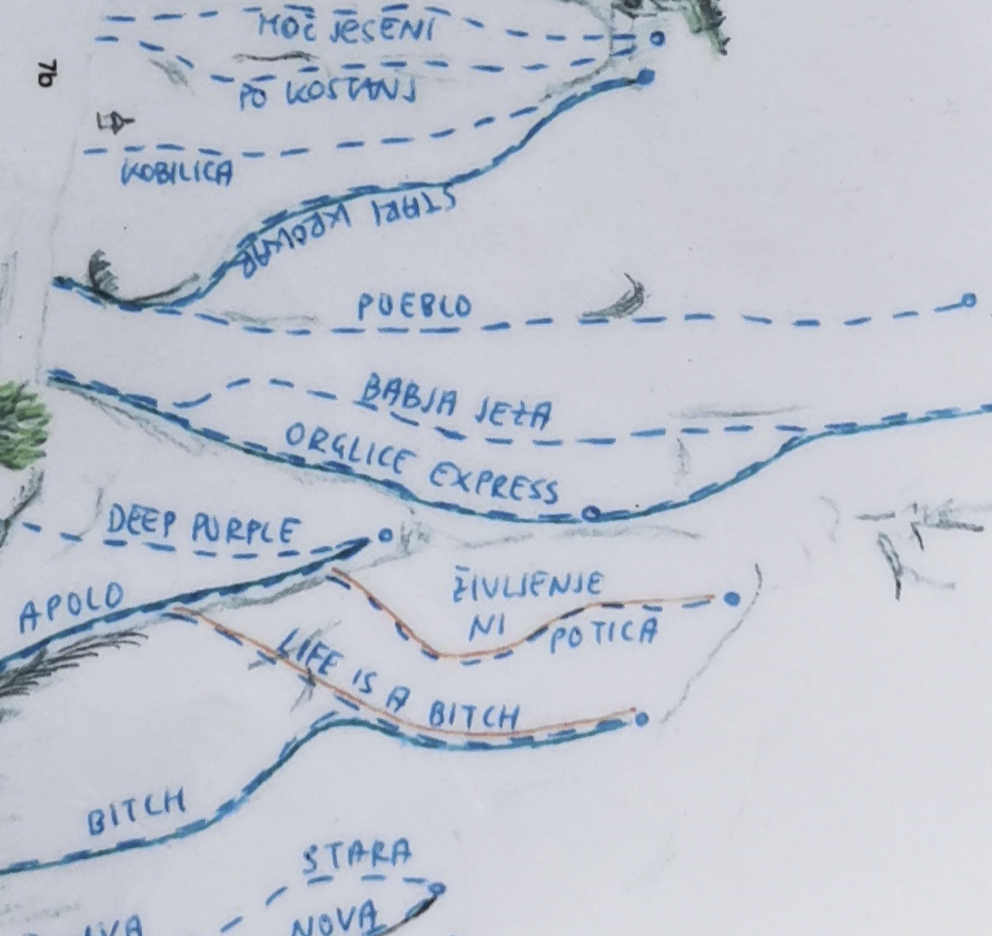 MOČ JESENI
PO KOSTANJ
7b
KOBILICA
STARI KROKAR
PUEBLO
BABJA JEŽA
ORGLICE EXPRESS
DEEP PURPLE
APOLO
ŽIVLJENJE
NI POTICA
LIFE IS A BITCH
BITCH
STARA
NOVA